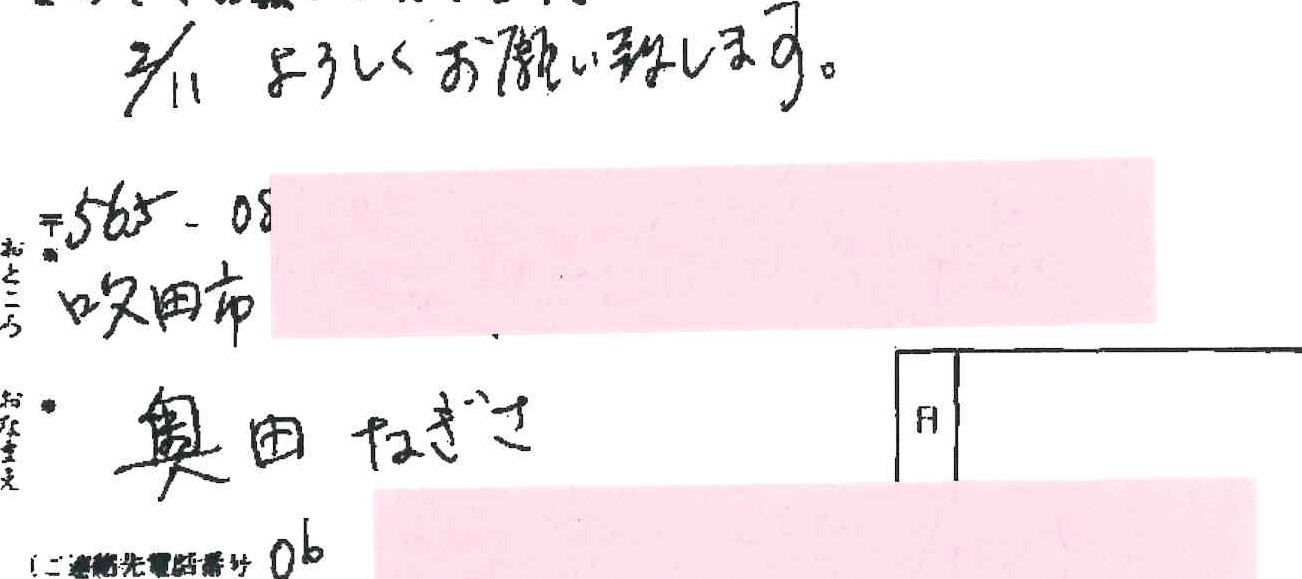 2/11 よろしくお願い致します。
〒565-08
おところ
吹田市
おなまえ
奥田 なぎさ
月
(ご連絡先電話番号 06